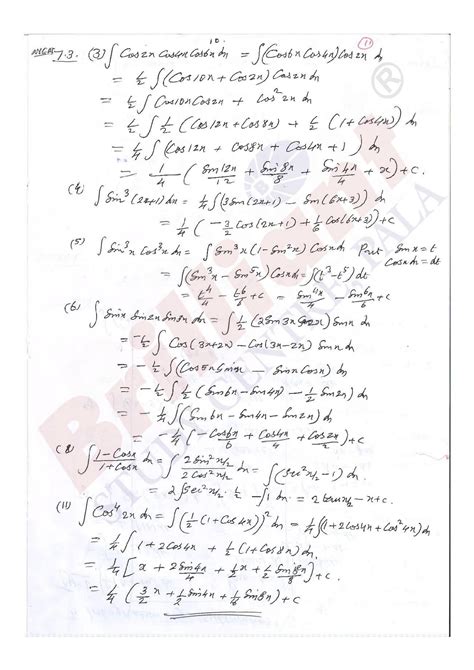 10
(11)
7.3. (3) ∫ Cos2x Cos4x Cos6x dx = ∫ (Cos6x Cos4x) Cos2x dx
= ½ ∫ (Cos10x + Cos2x) Cos2x dx
= ½ ∫ Cos10x Cos2x + Cos²2x dx
= ½ ∫ ½ (Cos12x + Cos8x) + ½ (1 + Cos4x) dx
= ¼ ∫ (Cos12x + Cos8x + Cos4x + 1) dx
= ¼ (Sin12x/12 + Sin8x/8 + Sin4x/4 + x) + c.
(4) ∫ Sin³(2x+1) dx = ¼ ∫ (3Sin(2x+1) − Sin(6x+3)) dx
= ¼ (−3/2 Cos(2x+1) + 1/6 Cos(6x+3)) + c
(5) ∫ Sin³x Cos³x dx = ∫ Sin³x (1−Sin²x) Cosx dx Put Sinx = t
Cosx dx = dt
= ∫ (Sin³x − Sin⁵x) Cosx dx = ∫ (t³−t⁵) dt
= t⁴/4 − t⁶/6 + c = Sin⁴x/4 − Sin⁶x/6 + c
(6) ∫ Sinx Sin2x Sin3x dx = ∫ ½ (2Sin3x Sin2x) Sinx dx
= −½ ∫ Cos(3x+2x) − Cos(3x−2x) Sinx dx
= −½ ∫ (Cos5x Sinx − Sinx Cosx) dx
= −½ ∫ ½ (Sin6x − Sin4x) − ½ Sin2x) dx
= −¼ ∫ (Sin6x − Sin4x − Sin2x) dx
= −¼ (−Cos6x/6 + Cos4x/4 + Cos2x/2) + c
(8) ∫ 1−Cosx/1+Cosx dx = ∫ 2Sin²x/2 / 2Cos²x/2 dx = ∫ (Sec²x/2 −1) dx
= 2∫ Sec²x/2 · ½ − ∫1 dx = 2 tanx/2 − x + c.
(11) ∫ Cos⁴2x dx = ∫ (½ (1+Cos4x))² dx = ¼ ∫ (1+2Cos4x + Cos²4x) dx
= ¼ ∫ 1 + 2Cos4x + ½ (1 + Cos8x) dx
= ¼ [x + 2Sin4x/4 + ½x + ½ Sin8x/8] + c
= ¼ (3/2 x + ½ Sin4x + 1/16 Sin8x) + c
Brilliant
STUDY CENTRE, PALA
®